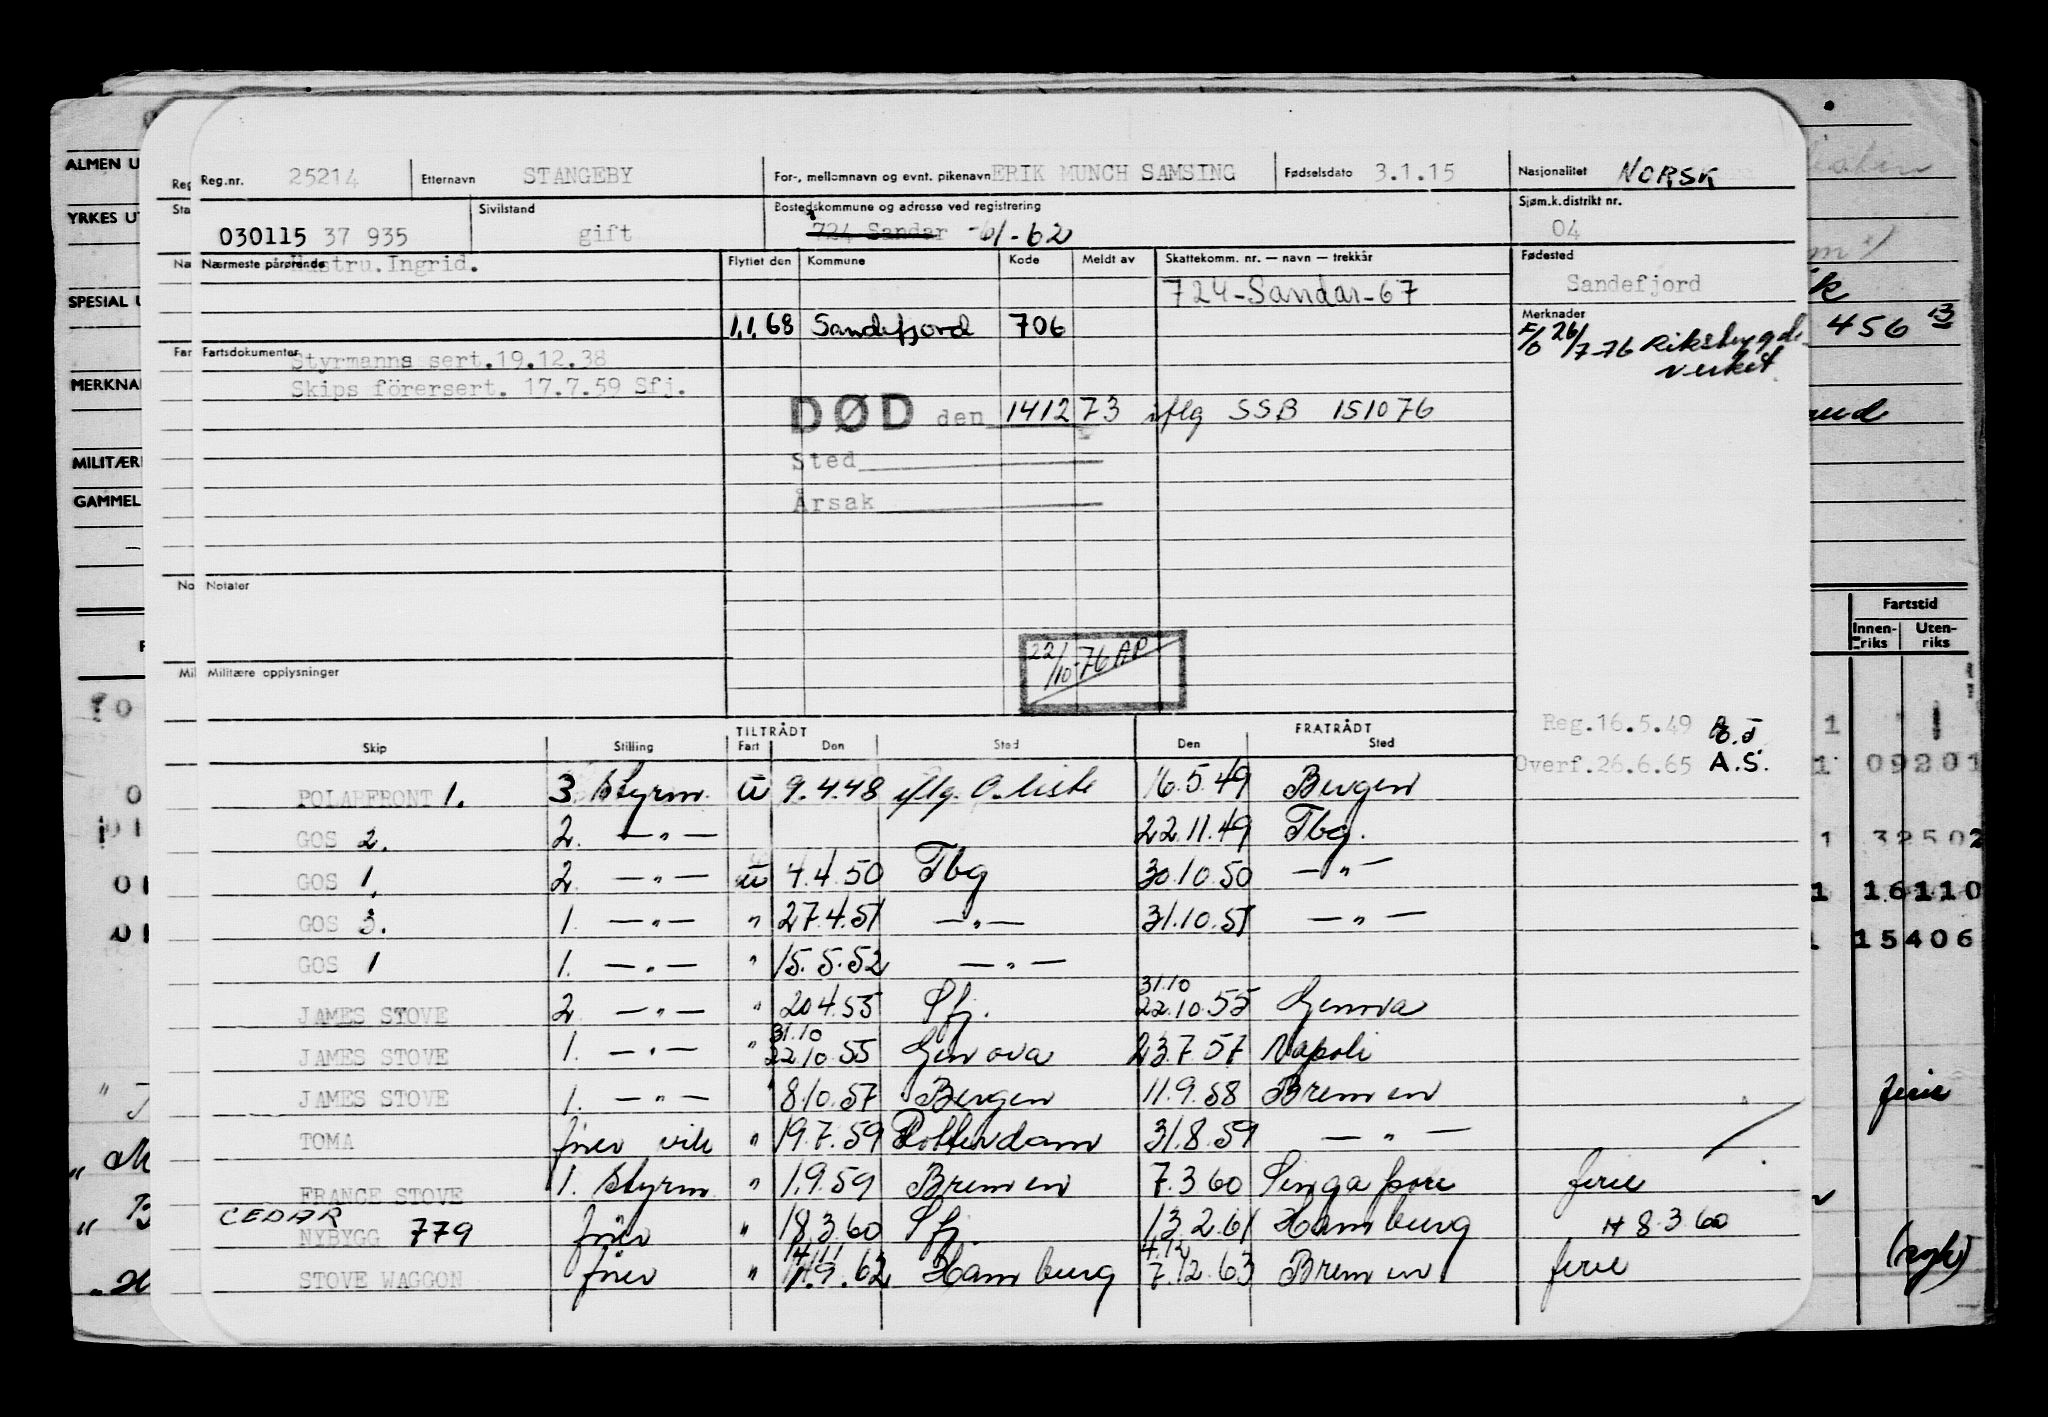 Reg.nr. 25214 Etternavn STANGEBY For-, mellomnavn og evnt. pikenavn ERIK MUNCH SAMSING Fødselsdato 3.1.15 Nasjonalitet NORSK
Sivilstand Bostedskommune og adresse ved registrering Sjøm.k.distrikt nr.
030115 37 935 gift 724 Sandar -61-62 04
Nærmeste pårørende Hustru. Ingrid. Flyttet den Kommune Kode Meldt av Skattekomm. nr. — navn — trekkår Fødested
724-Sandar-67 Sandefjord
1.1.68 Sandefjord 706 Merknader
F/O 26/7-76 Riksbygde-
verket
Fartsdokumenter
Styrmanns sert.19.12.38
Skips förersert. 17.7.59 Sfj.
DØD den 141273 iflg SSB 151076
Sted
Årsak
Notater
22/10-76 AP
Militære opplysninger
Reg.16.5.49
Overf.26.6.65 A.S.
TILTRÅDT FRATRÅDT
Skip Stilling Fart Den Sted Den Sted
POLARFRONT 1. 3. Styrm. U 9.4.48 iflg. O.liste 16.5.49 Bergen
GOS 2. 2. —"— 22.11.49 Tbg.
GOS 1. 2. —"— U 4.4.50 Tbg 30.10.50 —"—
GOS 3. 1. —"— " 27.4.51 —"— 31.10.51 —"—
GOS 1 1. —"— " 15.5.52 —"—
31.10
JAMES STOVE 2 —"— " 20.4.55 Sfj. 22.10.55 Genova
31.10
JAMES STOVE 1. —"— " 22.10.55 Genova 23.7.57 Napoli
JAMES STOVE 1. —"— " 8.10.57 Bergen 11.9.58 Bremen
TOMA fører vik " 19.7.59 Rotterdam 31.8.59 —"—
FRANCE STOVE 1. Styrm " 1.9.59 Bremen 7.3.60 Singapore ferie
CEDAR
NYBYGG 779 fører " 18.3.60 Sfj. 13.2.61 Hamburg H 8.3.60
4.12
STOVE WAGGON fører " 9.62 Hamburg 7.12.63 Bremen ferie
ALMEN U
YRKES UT
SPESIAL U
MERKNA
MILITÆR
GAMMEL
456
Fartstid
Innen-riks Uten-riks
1
1 09201
1 32502
1 16110
15406
ferie